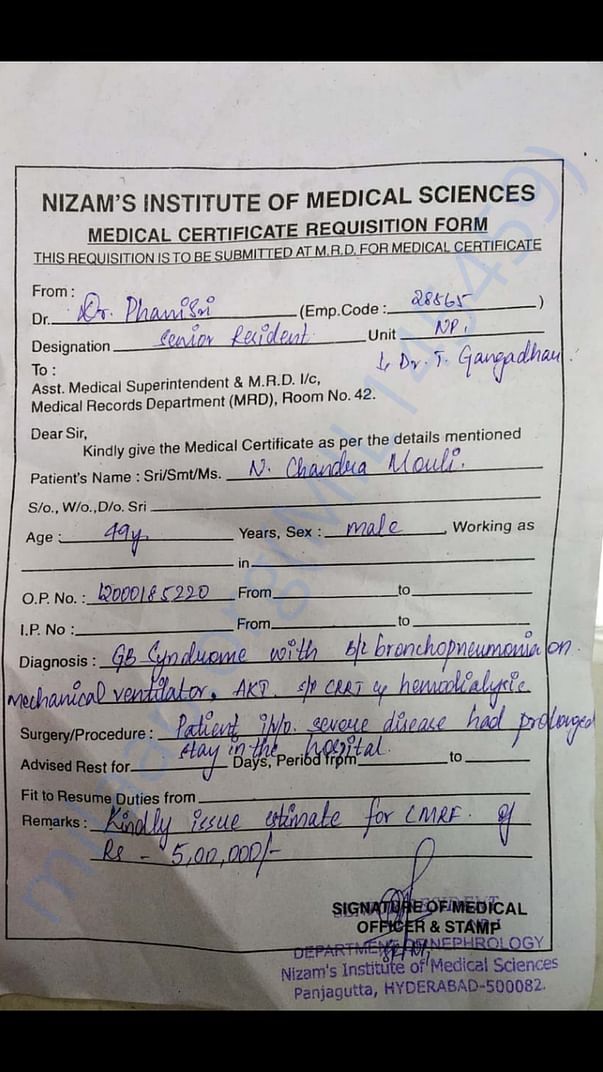 NIZAM'S INSTITUTE OF MEDICAL SCIENCES
MEDICAL CERTIFICATE REQUISITION FORM
THIS REQUISITION IS TO BE SUBMITTED AT M.R.D. FOR MEDICAL CERTIFICATE
From :
Dr. Dr. PhaniSri (Emp.Code : 28565 )
Designation Senior Resident Unit NP1
To : & Dr. T. Gangadhar.
Asst. Medical Superintendent & M.R.D. I/c,
Medical Records Department (MRD), Room No. 42.
Dear Sir,
Kindly give the Medical Certificate as per the details mentioned
Patient's Name : Sri/Smt/Ms. N. Chandra Mouli.
S/o., W/o.,D/o. Sri
Age : 49y Years, Sex : male , Working as
in
O.P. No. : 12000185220 From to
I.P. No : From to
Diagnosis : GB Syndrome with B/L bronchopneumonia on
mechanical ventilator, AKI. s/p CRRT hemodialysis
Surgery/Procedure : Patient i/v/o. severe disease had prolonged
stay in the hospital.
Advised Rest for Days, Period from to
Fit to Resume Duties from
Remarks : Kindly issue estimate for CMRF. of
Rs - 5,00,000/-
SIGNATURE OF MEDICAL
OFFICER & STAMP
DEPARTMENT OF NEPHROLOGY
Nizam's Institute of Medical Sciences
Panjagutta, HYDERABAD-500082.